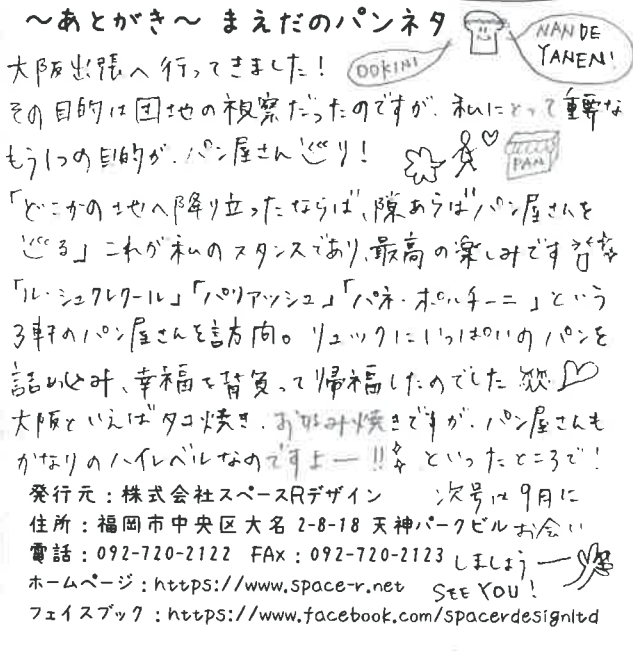 ～あとがき～ まえだのパンネタ
NAN DE
YANEN!
OOKINI
大阪出張へ行ってきました！
その目的は団地の視察だったのですが、私にとって重要な
もう1つの目的が、パン屋さん巡り！
PAN
「どこかの地へ降り立ったならば、隙あらばパン屋さんを
巡る」これが私のスタンスであり、最高の楽しみです
「ル・シュクレクール」「パリアッシュ」「パネ・ポルチーニ」という
3軒のパン屋さんを訪問。リュックにいっぱいのパンを
詰め込み、幸福を背負って帰福したのでした
大阪といえばタコ焼き、お好み焼きですが、パン屋さんも
かなりのハイレベルなのですよー!! といったところで！
発行元：株式会社スペースRデザイン
住所：福岡市中央区大名2-8-18 天神パークビル
電話：092-720-2122 FAX：092-720-2123
ホームページ：https://www.space-r.net
フェイスブック：https://www.facebook.com/spacerdesignltd
次号は9月に
お会い
しましょうー
SEE YOU!